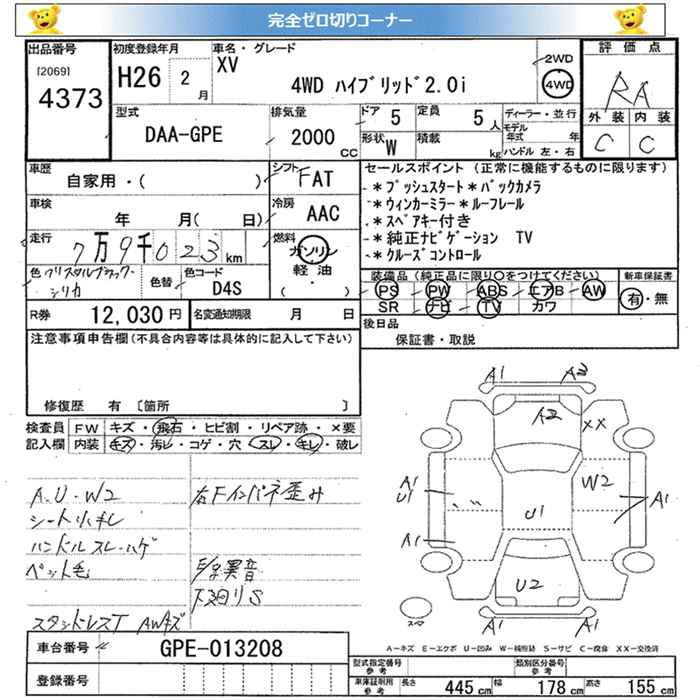 完全ゼロ切りコーナー
出品番号
[2069]
4373
初度登録年月
H26 2 月
車名・グレード
XV
4WD ハイブリッド2.0i
2WD
4WD
評価点
RA
外装 内装
C C
型式
DAA-GPE
排気量
2000 CC
ドア 5
定員 5 人
形状 W
積載 kg
ディーラー・並行
モデル年式 年
ハンドル 左・右
車歴
自家用・( )
シフト FAT
車検
年 月( 日)
冷房
AAC
走行
7万9千023 km
燃料
ガソリン
軽油
( )
色 クリスタルブラックシリカ
色替
色コード
D4S
R券 12,030 円
名変通知期限 月 日
セールスポイント(正常に機能するものに限ります)
*プッシュスタート*バックカメラ
*ウィンカーミラー*ルーフレール
*スペアキー付き
*純正ナビゲーション TV
*クルーズコントロール
装備品(純正品に限り○をつけてください)
PS PW ABS エアB AW
SR ナビ TV カワ
新車保証書
有・無
後日品
保証書・取説
注意事項申告欄(不具合内容等は具体的に記入して下さい)
修復歴 有 〔箇所 〕
検査員記入欄
FW キズ・飛石・ヒビ割・リペア跡・×要
内装 キズ・汚レ・コゲ・穴・スレ・キレ・破レ
A.U.W2
右Fインパネ歪み
シート
ハンドルスレ・ハゲ
ペット毛
異音
下廻りS
スタッドレスT AWキズ
A1 A3
A2
XX
A1
U1
W2
A1
U1
A1
U2
A1 A1
スペア
A-キズ E-エクボ U-凹み W-補修跡 S-サビ C-腐食 XX-交換済
車台番号 GPE-013208
登録番号
型式指定番号 参考
類別区分番号 参考
車庫証明用 参考
長さ 445 cm
幅 178 cm
高さ 155 cm